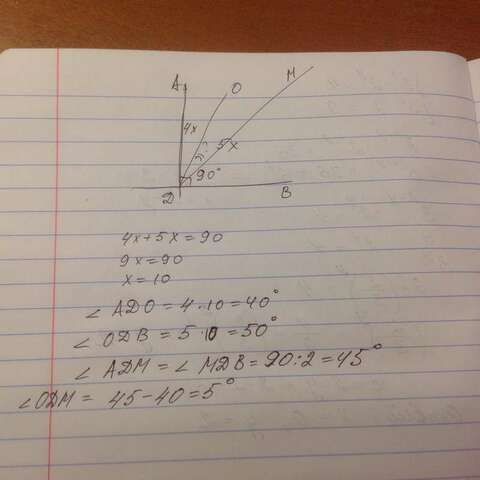 A O M
4x
5x
90°
D B
4x+5x=90
9x=90
x=10
∠ADO=4·10=40°
∠ODB=5·10=50°
∠ADM=∠MDB=90:2=45°
∠ODM=45-40=5°